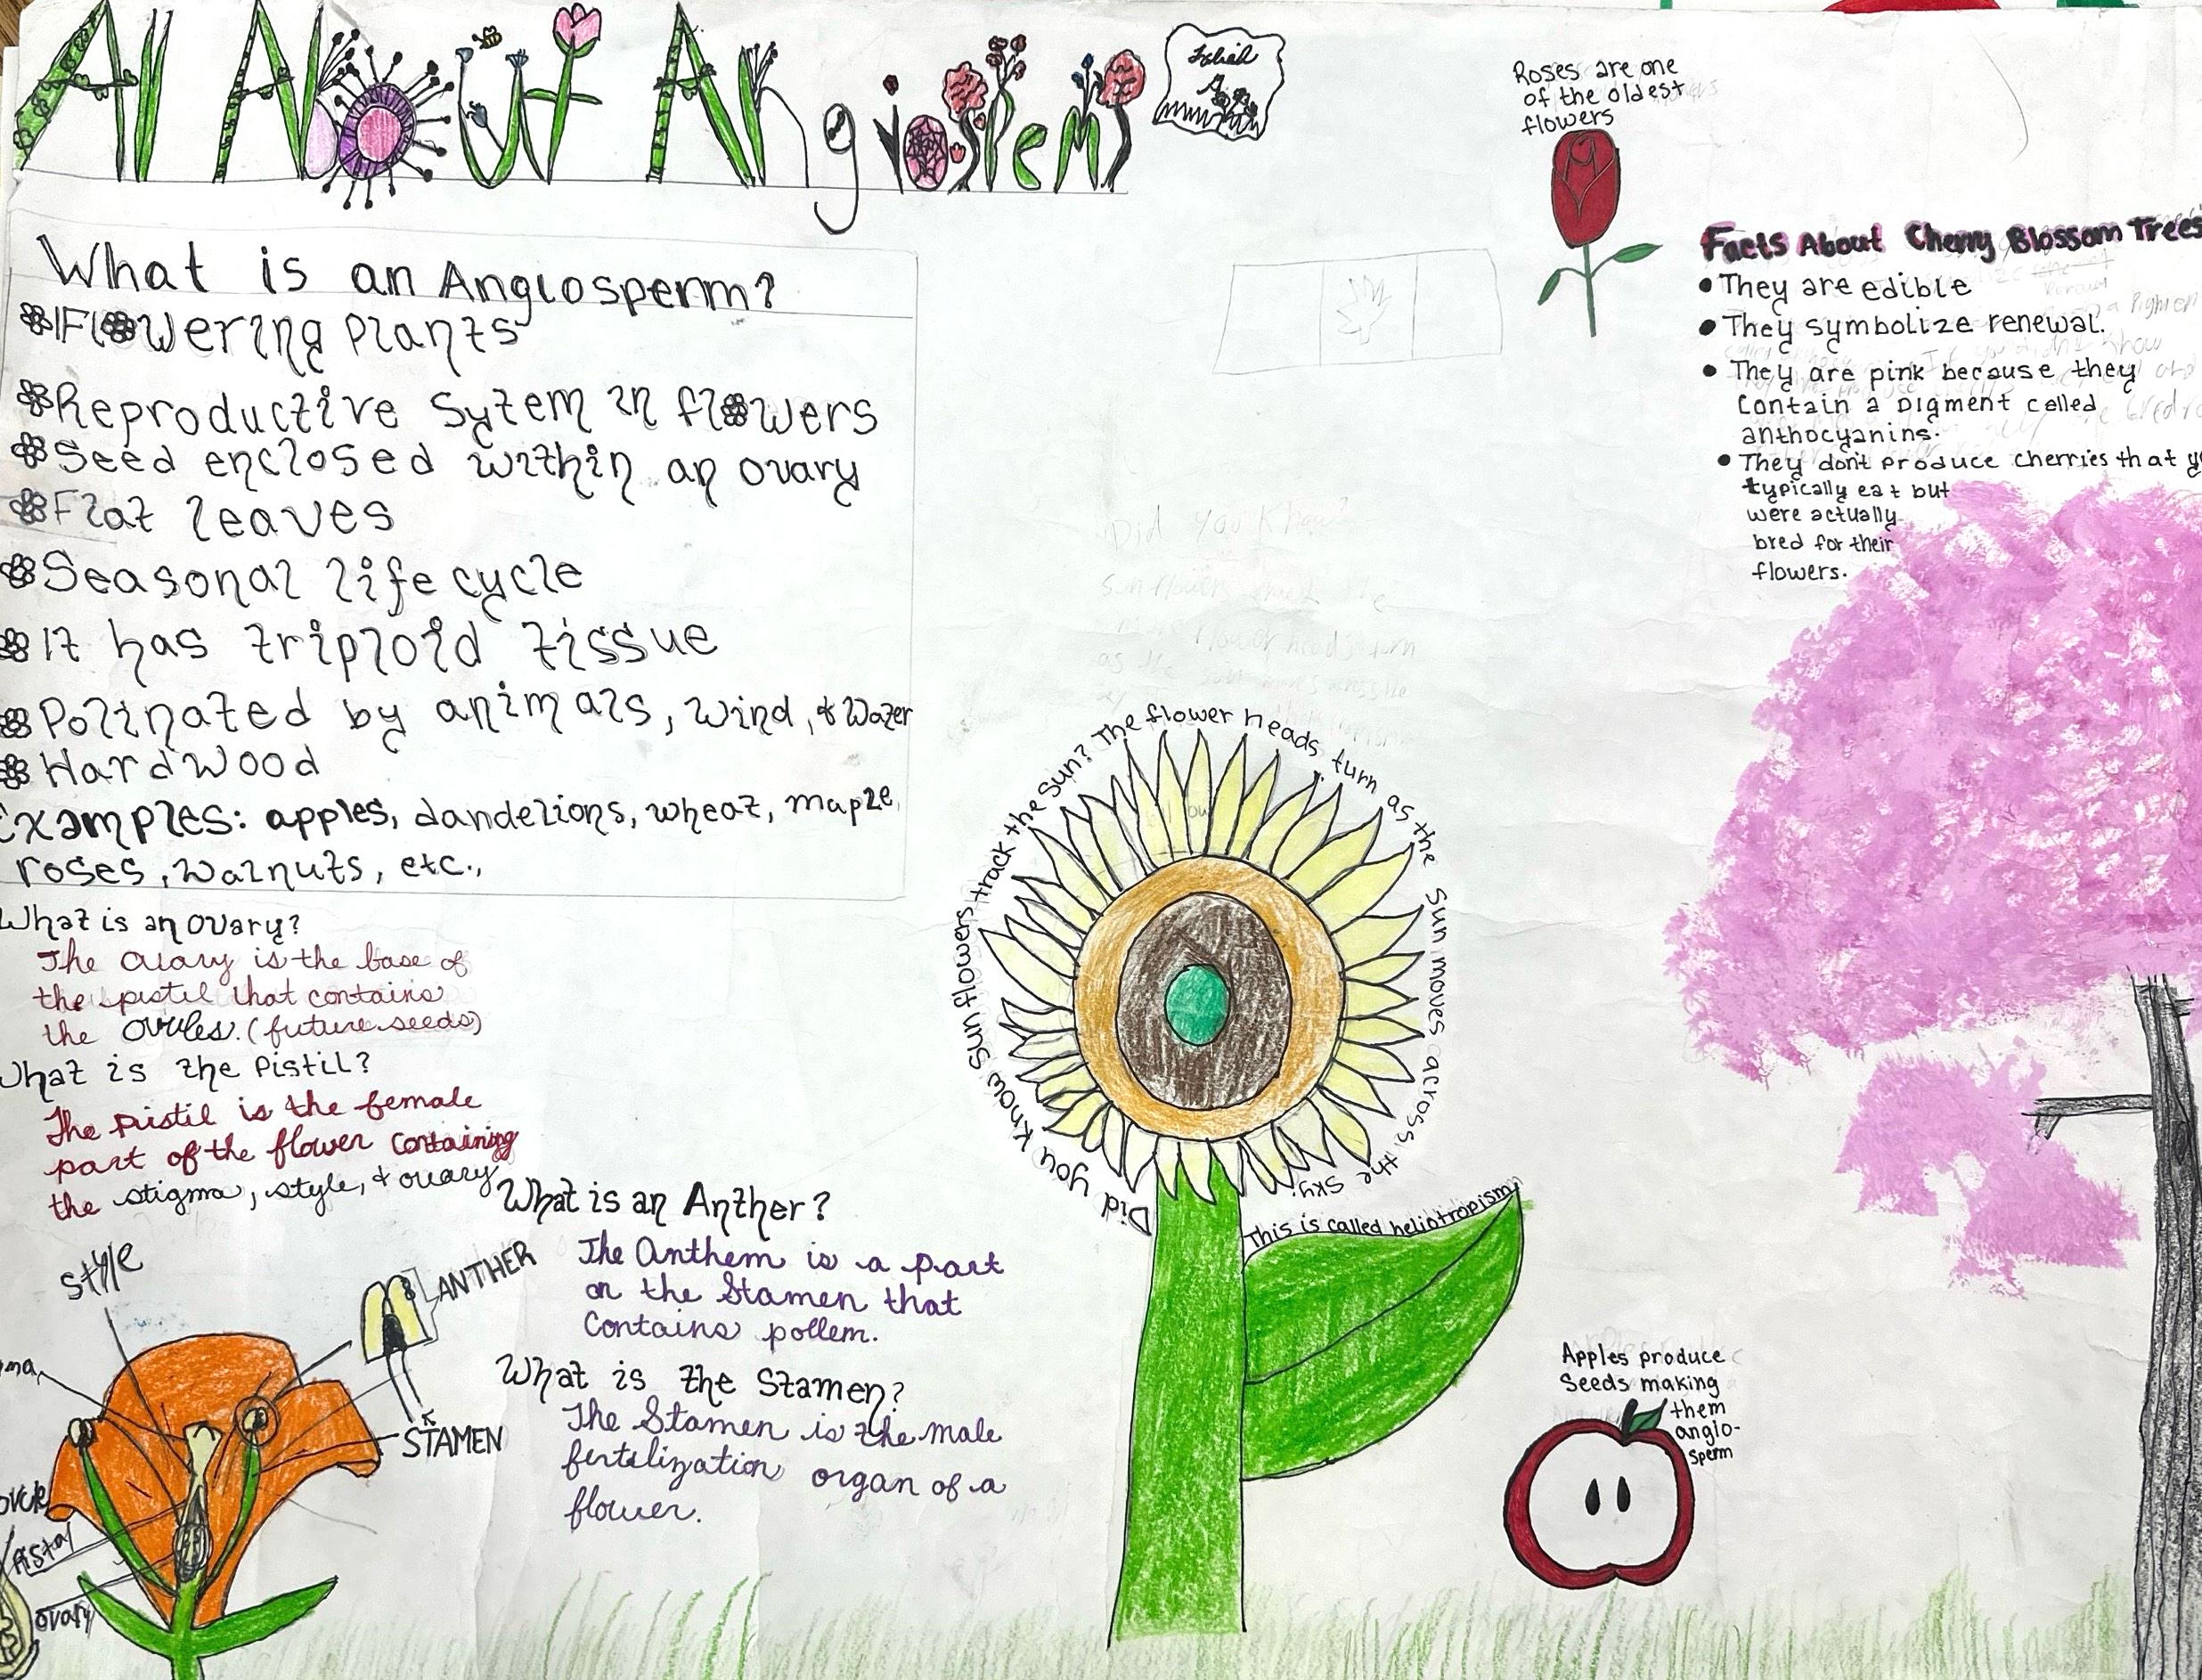 All About Angiosperms
What is an Angiosperm?
Flowering Plants
Reproductive Sytem in flowers
Seed enclosed within an ovary
Flat leaves
Seasonal life cycle
It has triploid tissue
Polinated by animals, wind, & Water
Hardwood
Examples: apples, dandelions, wheat, maple,
roses, walnuts, etc.,
What is an ovary?
The ovary is the base of
the pistil that contains
the ovules. (future seeds)
What is the Pistil?
The pistil is the female
part of the flower containing
the stigma, style, & ovary
style
ANTHER
STAMEN
Pistal
ovary
What is an Anther?
The Anthem is a part
on the Stamen that
Contains pollem.
What is the Stamen?
The Stamen is the male
fertilization organ of a
flower.
Did you know sunflowers track the sun? The flower heads turn as the sun moves across the sky.
This is called heliotropism
Roses are one
of the oldest
flowers
Facts About Cherry Blossom Trees
• They are edible
• They symbolize renewal.
• They are pink because they
Contain a pigment called
anthocyanins.
• They don't produce cherries that
typically eat but
were actually
bred for their
flowers.
Apples produce
Seeds making
them
anglo-
sperm
Did You Know?